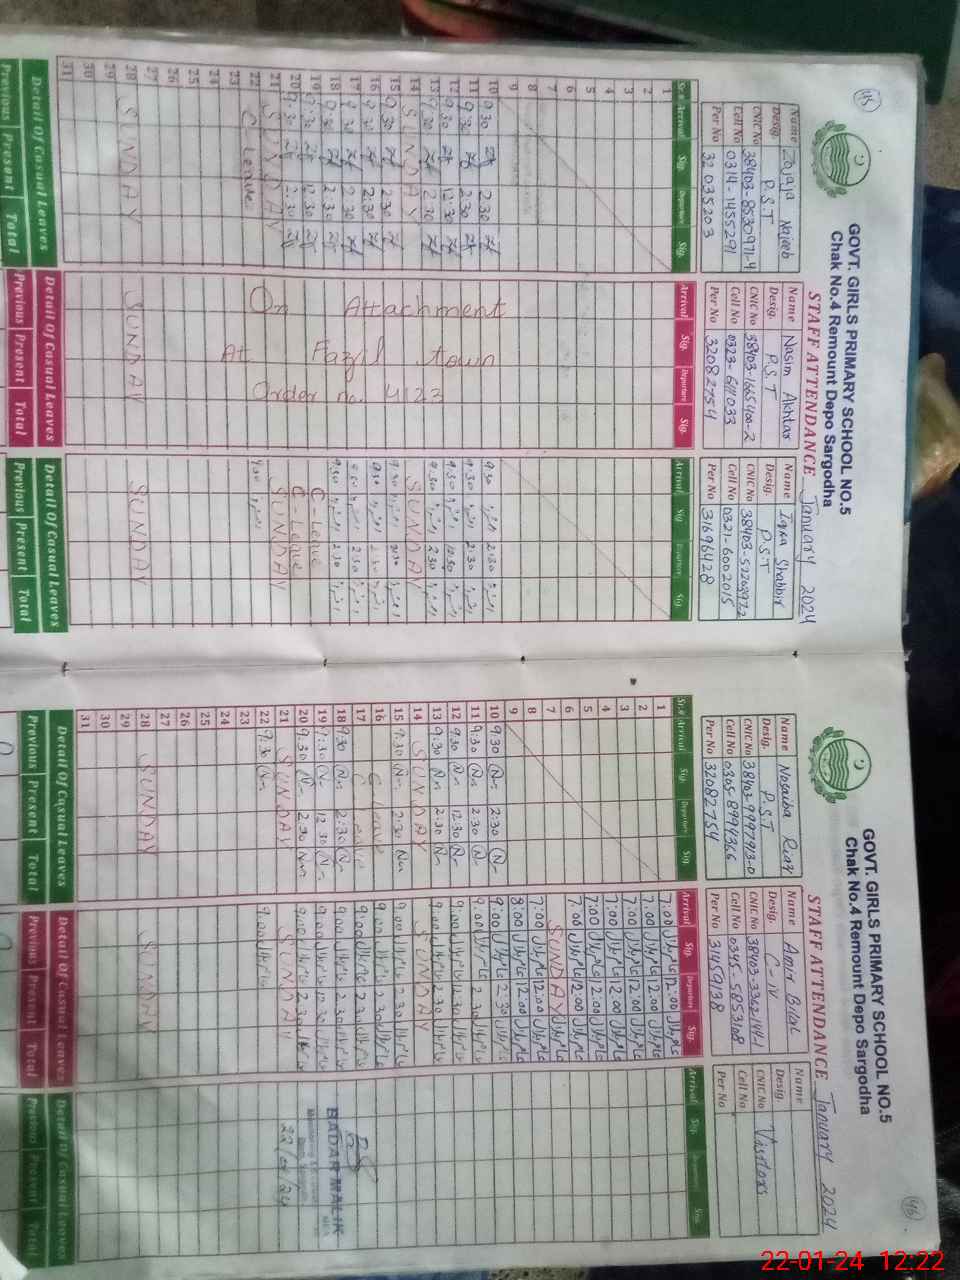 45
GOVT. GIRLS PRIMARY SCHOOL NO.5
Chak No.4 Remount Depo Sargodha
STAFF ATTENDANCE January 2024
Name Zojaja Najeeb
Desig. P.S.T
CNIC No 38403-8530971-4
Cell No 0314-1455291
Per No 32035203
Name Nasim Akhtar
Desig. P.S.T
CNIC No 38403-1665400-2
Cell No 0323-6111033
Per No 32082754
Name Iqra Shabbir
Desig. P.S.T
CNIC No 38403-5220397-2
Cell No 0321-6002015
Per No 31696428
Sr.# Arrival Sig. Departure Sig. Arrival Sig. Departure Sig. Arrival Sig. Departure Sig.
1
2
3
4
5
6
7
8
9
10 9:30 2:30 On Attachment 9:30 2:30
11 9:30 2:30 9:30 2:30
12 9:30 12:30 9:30 12:30
13 9:30 2:30 9:30 2:30
14 SUNDAY SUNDAY
15 9:30 2:30 9:30 2:30
16 9:30 2:30 9:30 2:30
17 9:30 2:30 2:30
18 9:30 2:30 9:30 2:30
19 9:30 C-Leave
20 9:30 2:30 C-Leave
21 SUNDAY SUNDAY
22 C-Leave 9:30
At Fazil town
Order no. 4123
23
24
25
26
27
28 SUNDAY SUNDAY SUNDAY
29
30
31
Detail Of Casual Leaves Detail Of Casual Leaves Detail Of Casual Leaves
Previous Present Total Previous Present Total Previous Present Total
46
GOVT. GIRLS PRIMARY SCHOOL NO.5
Chak No.4 Remount Depo Sargodha
STAFF ATTENDANCE January 2024
Name Nosaiba Riaz
Desig. P.S.T
CNIC No 38403-9997913-0
Cell No 0305-8994366
Per No 32082754
Name Amir Bilal
Desig. C-iv
CNIC No 38403-3362144-1
Cell No 0345-5853108
Per No 31459138
Name
Desig.
CNIC No Visitors
Cell No
Per No
Sr.# Arrival Sig. Departure Sig. Arrival Sig. Departure Sig. Arrival Sig. Departure Sig.
1 7:00 12:00
2 7:00 12:00
3 7:00 12:00
4 7:00 12:00
5 7:00 12:00
6 7:00 12:00
7 SUNDAY
8 7:00 12:00
9 8:00 12:00
10 9:30 2:30 9:00 2:30
11 9:30 2:30 9:00 2:30
12 9:30 12:30 9:00 12:30
13 9:30 2:30 9:00 2:30
14 SUNDAY SUNDAY
15 9:30 2:30 9:00 2:30
16 C Leave 9:00 2:30
17 C Leave 9:00 2:30
18 9:30 2:30 9:00 2:30
19 9:30 12:30 9:00 12:30
20 9:30 2:30 9:00 2:30
21 SUNDAY SUNDAY
22 9:30 9:00
BADAR MALIK
22/01/24
23
24
25
26
27
28 SUNDAY SUNDAY
29
30
31
Detail Of Casual Leaves Detail Of Casual Leaves Detail Of Casual Leaves
Previous Present Total Previous Present Total Previous Present Total
22-01-24 12:22